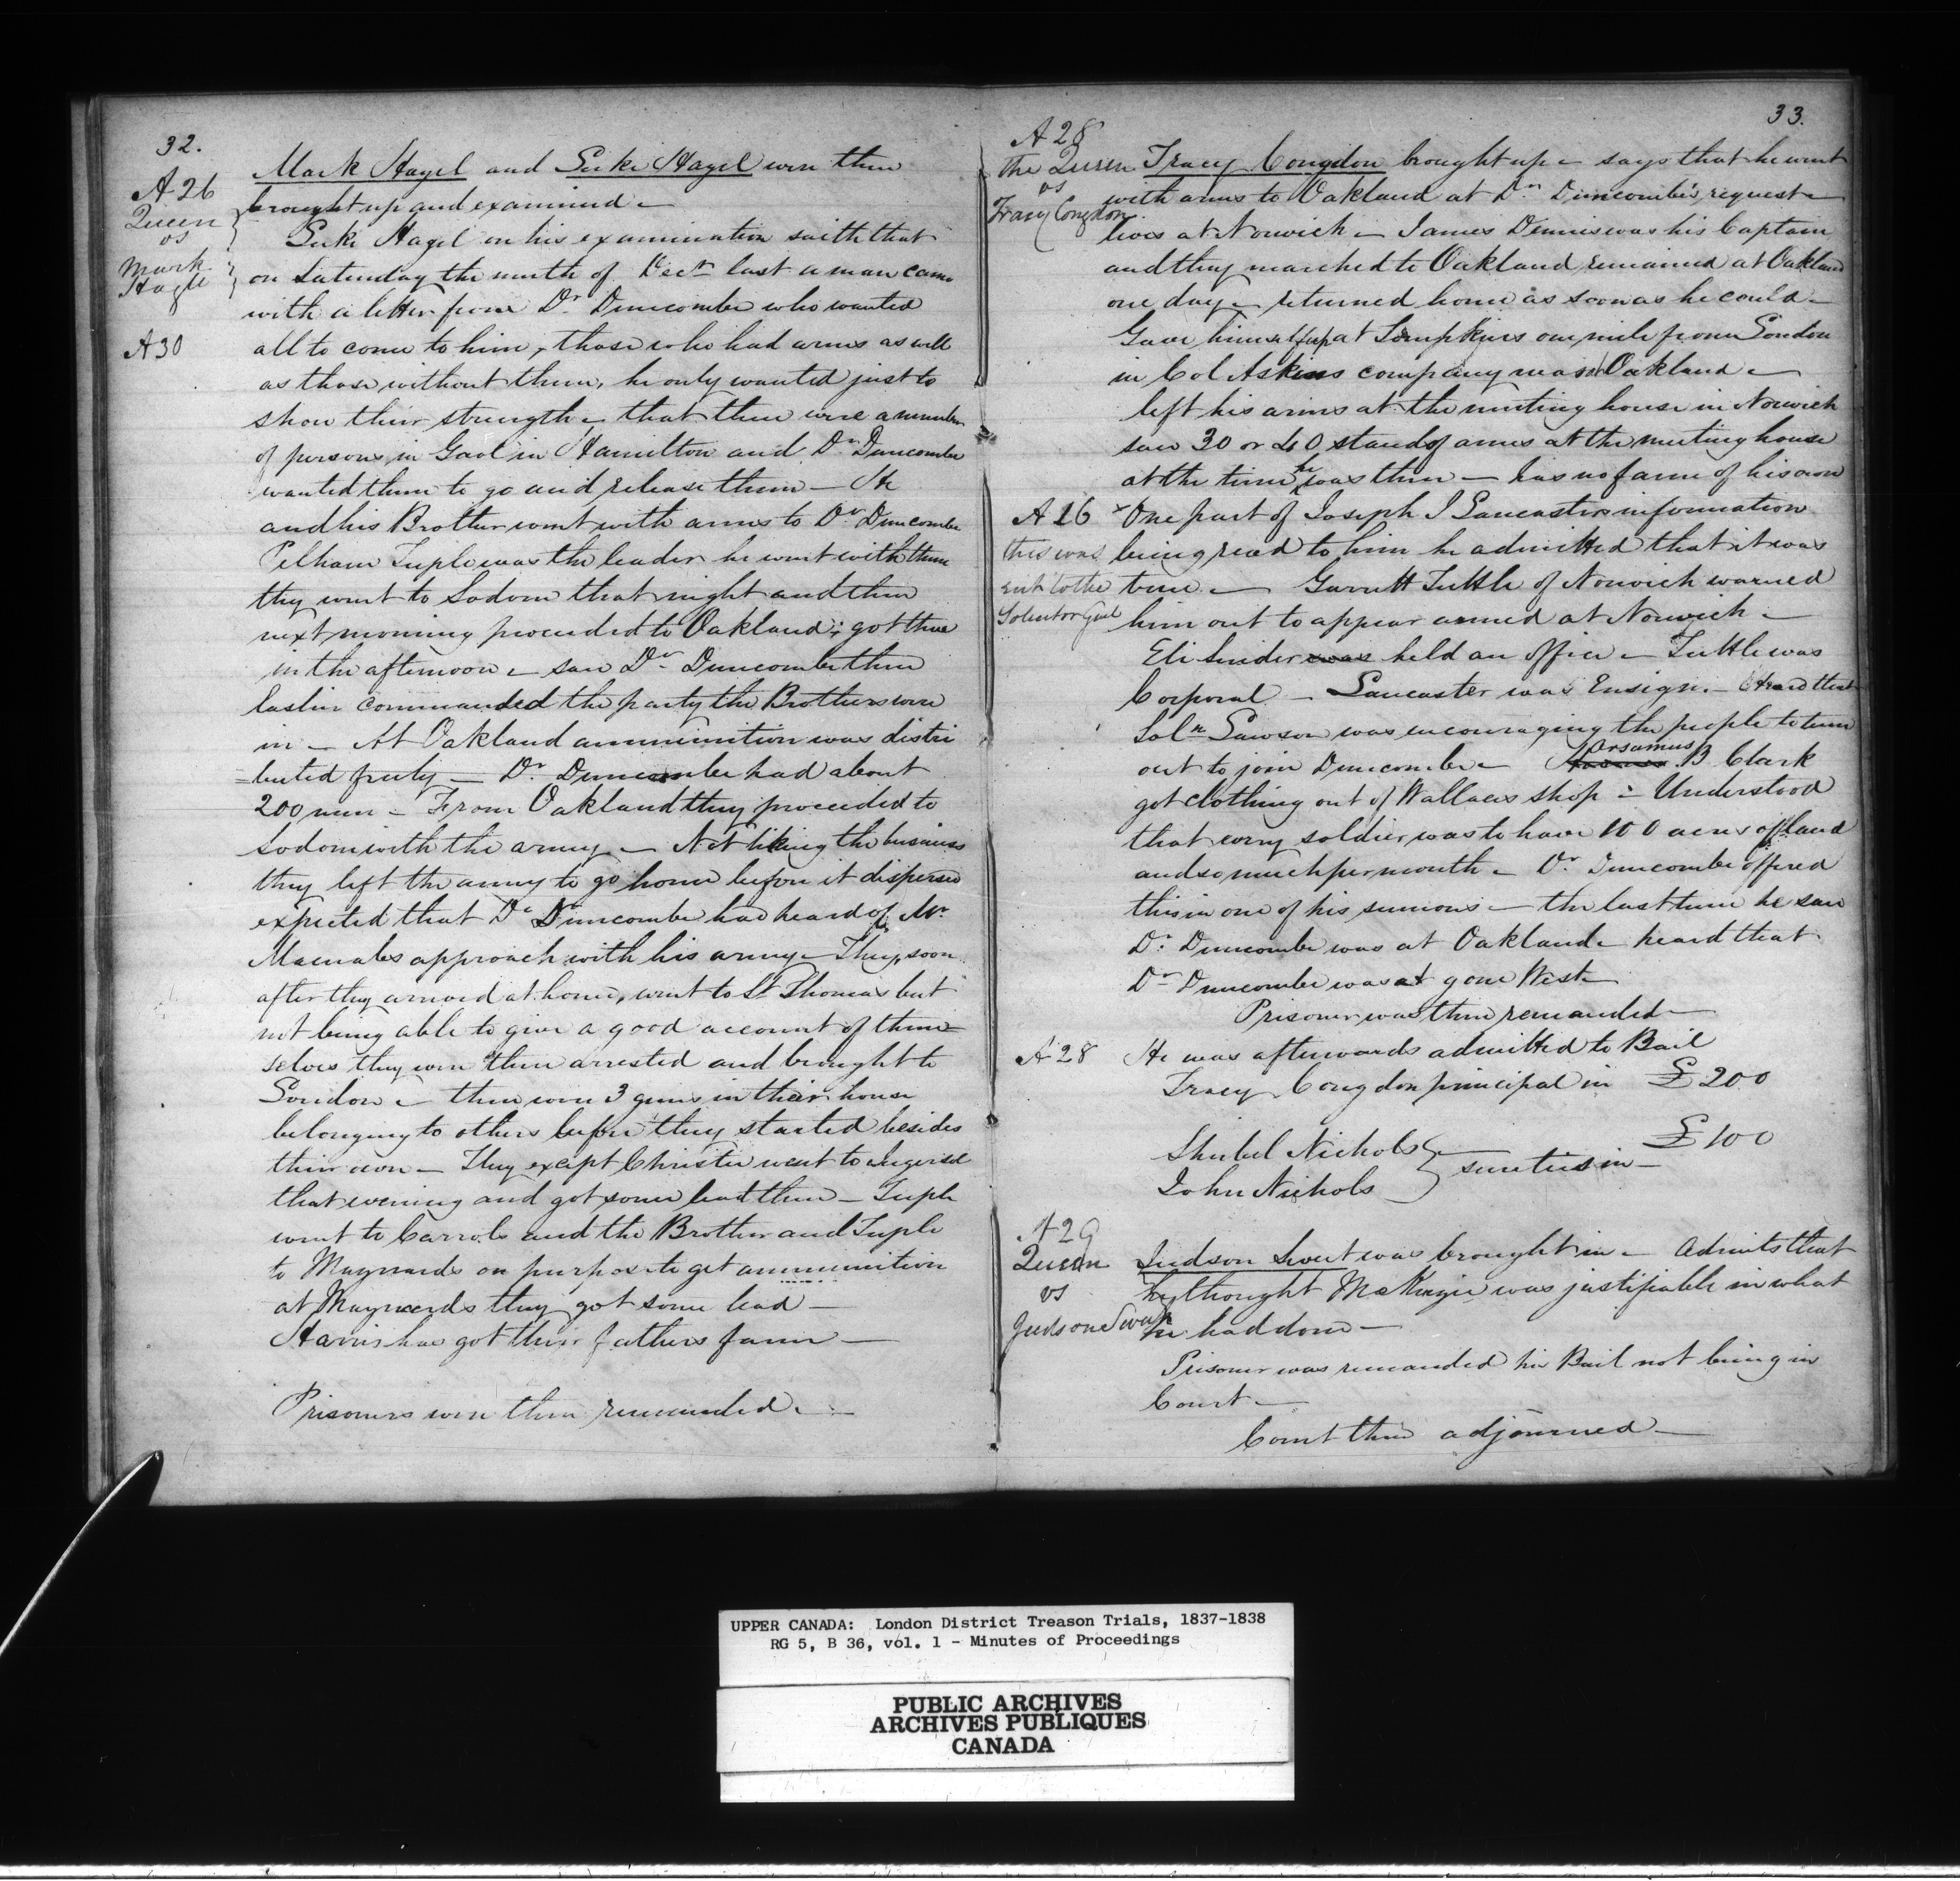 32.
A 26
Queen
vs
Mark
Hagle
A 30
Mark Hagel and Luke Hagel were then
brought up and examined –
Luke Hagel on his examination saith that
on Saturday the ninth of Decr last a man came
with a letter from Dr Duncombe who wanted
all to come to him, those who had arms as well
as those without them, he only wanted just to
show their strength – that there were a number
of persons in Gaol in Hamilton and Dr Duncombe
wanted them to go and release them – He
and his Brother went with arms to Dr Duncombe
Pelham was the leader he went with them
they went to Sodom that night and then
next morning proceeded to Oakland; got there
in the afternoon – saw Dr Duncombe there
commanded the party the Brothers were
in – At Oakland ammunition was distri
=buted freely – Dr. Duncombe had about
200 men – From Oakland they proceeded to
Sodom with the army – Not liking the business
they left the army to go home before it dispersed
expected that Dr Duncombe had heard of Mr.
Macnabs approach with his army – They, soon
after they arrived at home, went to St Thomas but
not being able to give a good account of them-
selves they were then arrested and brought to
London – there were 3 guns in their house
belonging to others before they started besides
their own – They except Christie went to
that evening and got some lead there –
went to Carrols and the Brother and
to Maynards on purpose to get ammunition
at Maynards they got some lead –
Harris has got their fathers farm –
Prisoners were then remanded –
33.
A 28
The Queen
vs
Tracy Congdon
Tracy Congdon brought up – says that he went
with arms to Oakland at Dr Duncombe's request –
lives at Norwich – James Dennis was his Captain
and they marched to Oakland, remained at Oakland
one day – returned home as soon as he could –
Gave himself up at one mile from London
in Col Askins company was at Oakland –
left his arms at the meeting house in Norwich
saw 30 or 40 stands of arms at the meeting house
at the time he was there – has no farm of his own
A 16
this was
sent to the
Solicitor Genl
x One part of Joseph J Lancasters information
being read to him he admitted that it was
true – Garrett Tuttle of Norwich warned
him out to appear armed at Norwich –
Eli Snider was held an office – Tuttle was
Corporal – Lancaster was Ensign – Heard that
Soln Lawson was encouraging the people to turn
out to join Duncombe – Orsamus B Clark
got clothing out of Wallaces shop – Understood
that every soldier was to have 100 acres of land
and so much per month – Dr. Duncombe offered
this in one of his sermons – the last time he saw
Dr. Duncombe was at Oakland – heard that
Dr Duncombe was at gone West –
Prisoner was then remanded –
A 28
He was afterwards admitted to Bail
Tracy Congdon principal in £200
Shubel Nichols
John Nichols } sureties in – £100
A 29
Queen
vs
Judson
Judson was brought in – Admits that
he thought McKenzie was justifiable in what
he had done –
Prisoner was remanded his Bail not being in
Court –
Court then adjourned –
UPPER CANADA: London District Treason Trials, 1837-1838
RG 5, B 36, vol. 1 - Minutes of Proceedings
PUBLIC ARCHIVES
ARCHIVES PUBLIQUES
CANADA